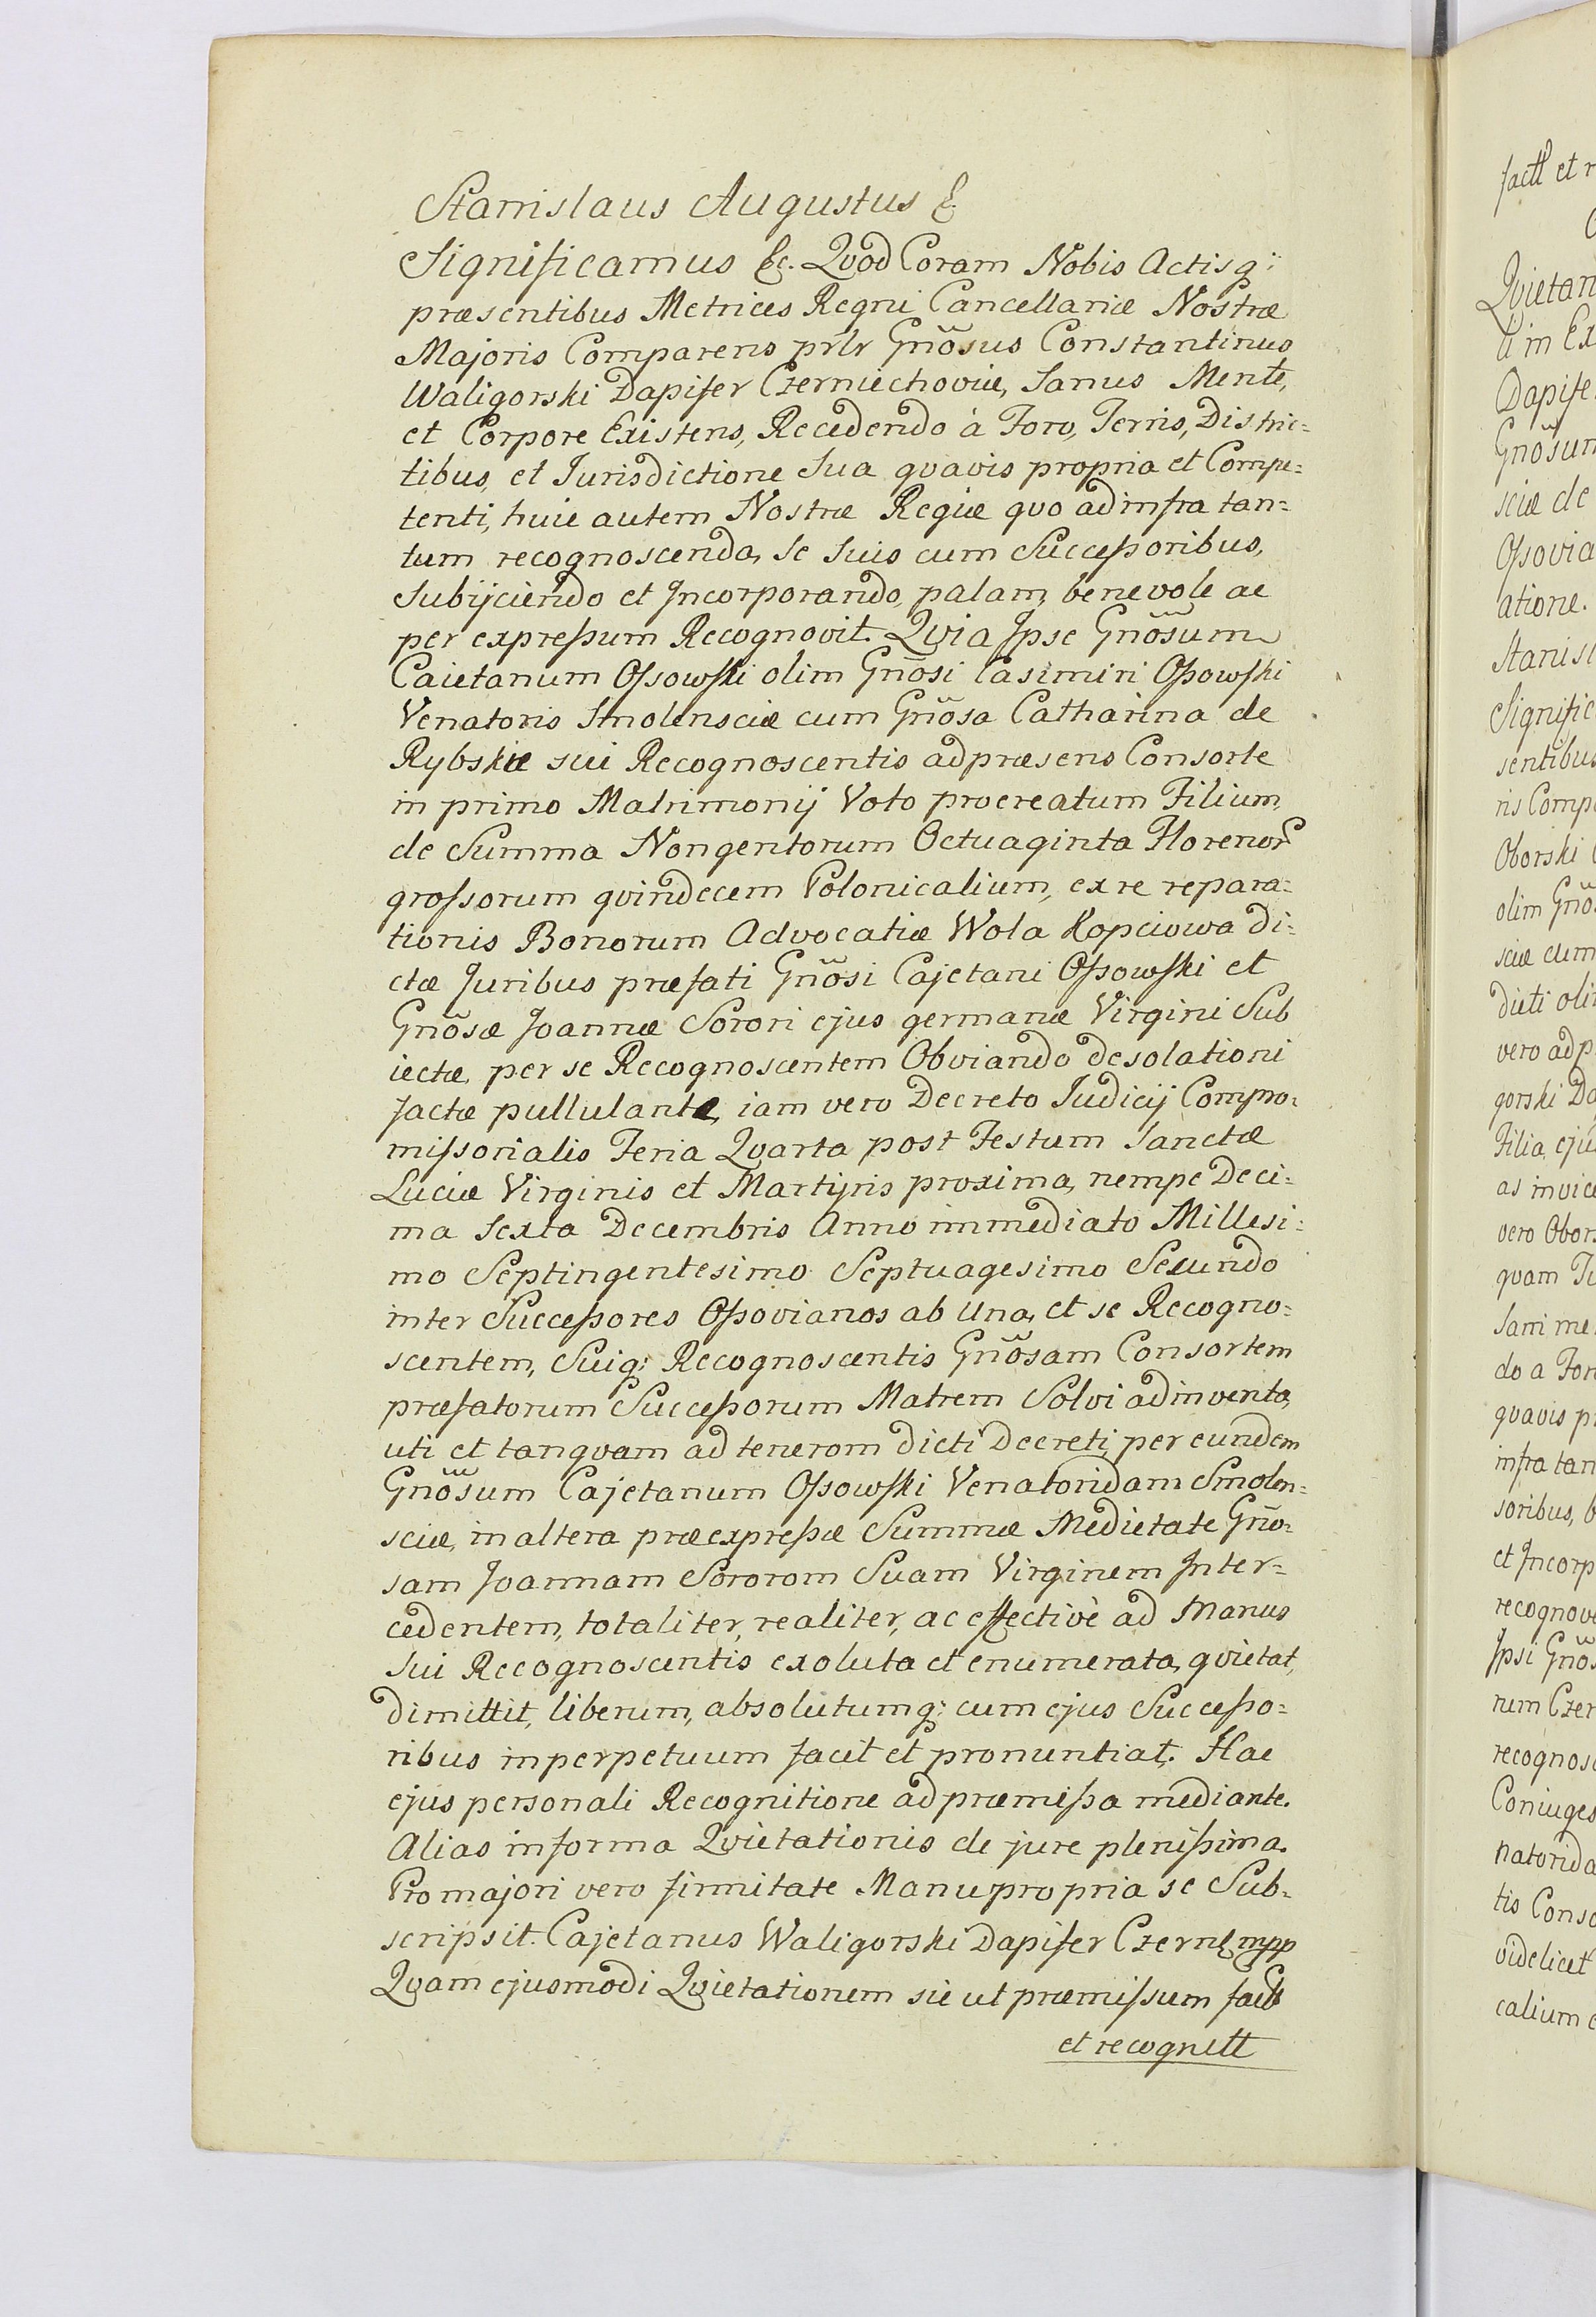 Stanislaus Augustus &
Significamus &c. Qvod Coram Nobis Actisq;
præsentibus Metrices Regni Cancellariæ Nostræ
Majoris Comparens prlr Gnõsus Constantinus
Waligorski Dapifer Czerniechoviæ, Sanus Mente,
et Corpore Existens, Recedendo à Foro, Terris, Distric=
tibus, et Jurisdictione Sua qvavis propria et Compe=
tenti, huic autem Nostræ Regiæ qvo ad infra tan=
tum recognoscenda, Se Suis cum Successoribus,
Subijciendo et Jncorporando, palam, benevole ac
per expressum Recognovit. Qvia Jpse Gnõsum
Caietanum Ossowski olim Gnõsi Casimiri Ossowski
Venatoris Smolensciæ cum Gnõsa Catharina de
Rybskiæ sui Recognoscentis ad præsens Consorte
in primo Matrimonij Voto procreatum Filium,
de Summa Nongentorum Octuaginta Florenor
grossorum qvindecem Polonicalium, ex re repara=
tionis Bonorum Advocatiæ Wola Kopciowa di=
ctæ Juribus præfati Gnõsi Cajetani Ossowski et
Gnõsæ Joannæ Sorori ejus germanæ Virgini Sub
iectæ, per se Recognoscentem Obviando desolationi
factæ pullulantæ, iam vero Decreto Judicij Compro=
missorialis Feria Qvarta post Festum Sanctæ
Luciæ Virginis et Martyris proxima, nempe Deci=
ma Sexta Decembris Anno immediato Millesi=
mo Septingentesimo Septuagesimo Secundo
inter Successores Ossovianos ab Una, et se Recogno=
scentem, Suiq; Recognoscentis Gnõsam Consortem
præfatorum Successorum Matrem Solvi adinventa,
uti et tanqvam ad tenerom dicti Decreti per eundem
Gnõsum Cajetanum Ossowski Venatoridam Smolen=
sciæ, in altera præexpressæ Summæ Medietate Gnõ=
sam Joannam Sororom Suam Virginem Jnter=
cedentem, totaliter, realiter, ac effectivè ad Manus
Sui Recognoscentis exoluta et enumerata, qvietat,
dimittit, liberum, absolutumq; cum ejus Successo=
ribus in perpetuum facit et pronuntiat. Hac
ejus personali Recognitione ad præmissa mediante.
Alias in forma Qvietationis de jure plenissima.
Pro majori vero firmitate Manu propria se Sub=
scripsit. Cajetanus Waligorski Dapifer Czern mpp
Qvam ejusmodi Qvietationem sic ut præmissum
et recognitt
factt et r
Qvietan
Dapife
Gnõsum
sciæ de
Ossovia
atione.
Stanisl
Signific
sentibus
ris Comp
Oborski
olim Gnõ
sciæ cum
dicti oli
vero ad p
gorski Da
Filia, eju
as invice
vero Obors
qvam Tu
Sani me
do a For
qvavis pr
infra tan
soribus, b
et Jncorp
recognove
Jpsi Gnõs
rum Czer
recognosc
Coniuges
natorida
tis Conso
videlicet
calium e